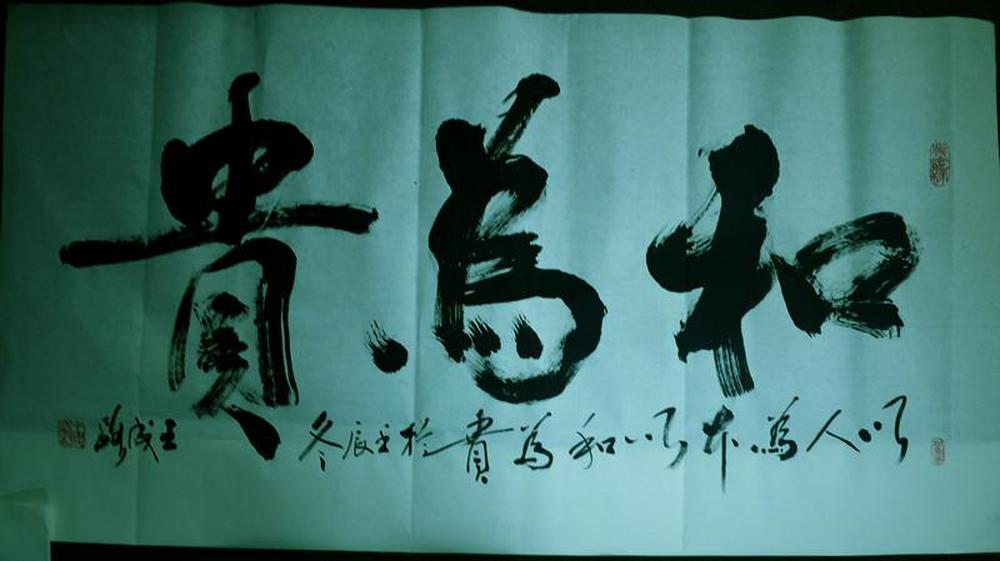 和為貴
以人為本以和為貴於壬辰冬
王成